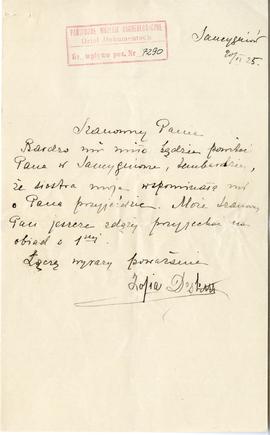 PAŃSTWOWE MUZEUM ARCHEOLOGICZNE
Dział Dokumentacji
Nr. wpływu poz. Nr 7290
Sancygniów
20/VI 25.
Szanowny Panie
Bardzo mi miło będzie powitać
Pana w Sancygniowie, tembardziej,
że siostra moja wspominała mi
o Pana przyjeździe. Może Szanowny
Pan jeszcze zdąży przyjechać na
obiad o 1ej
Łączę wyrazy poważania
Zofia